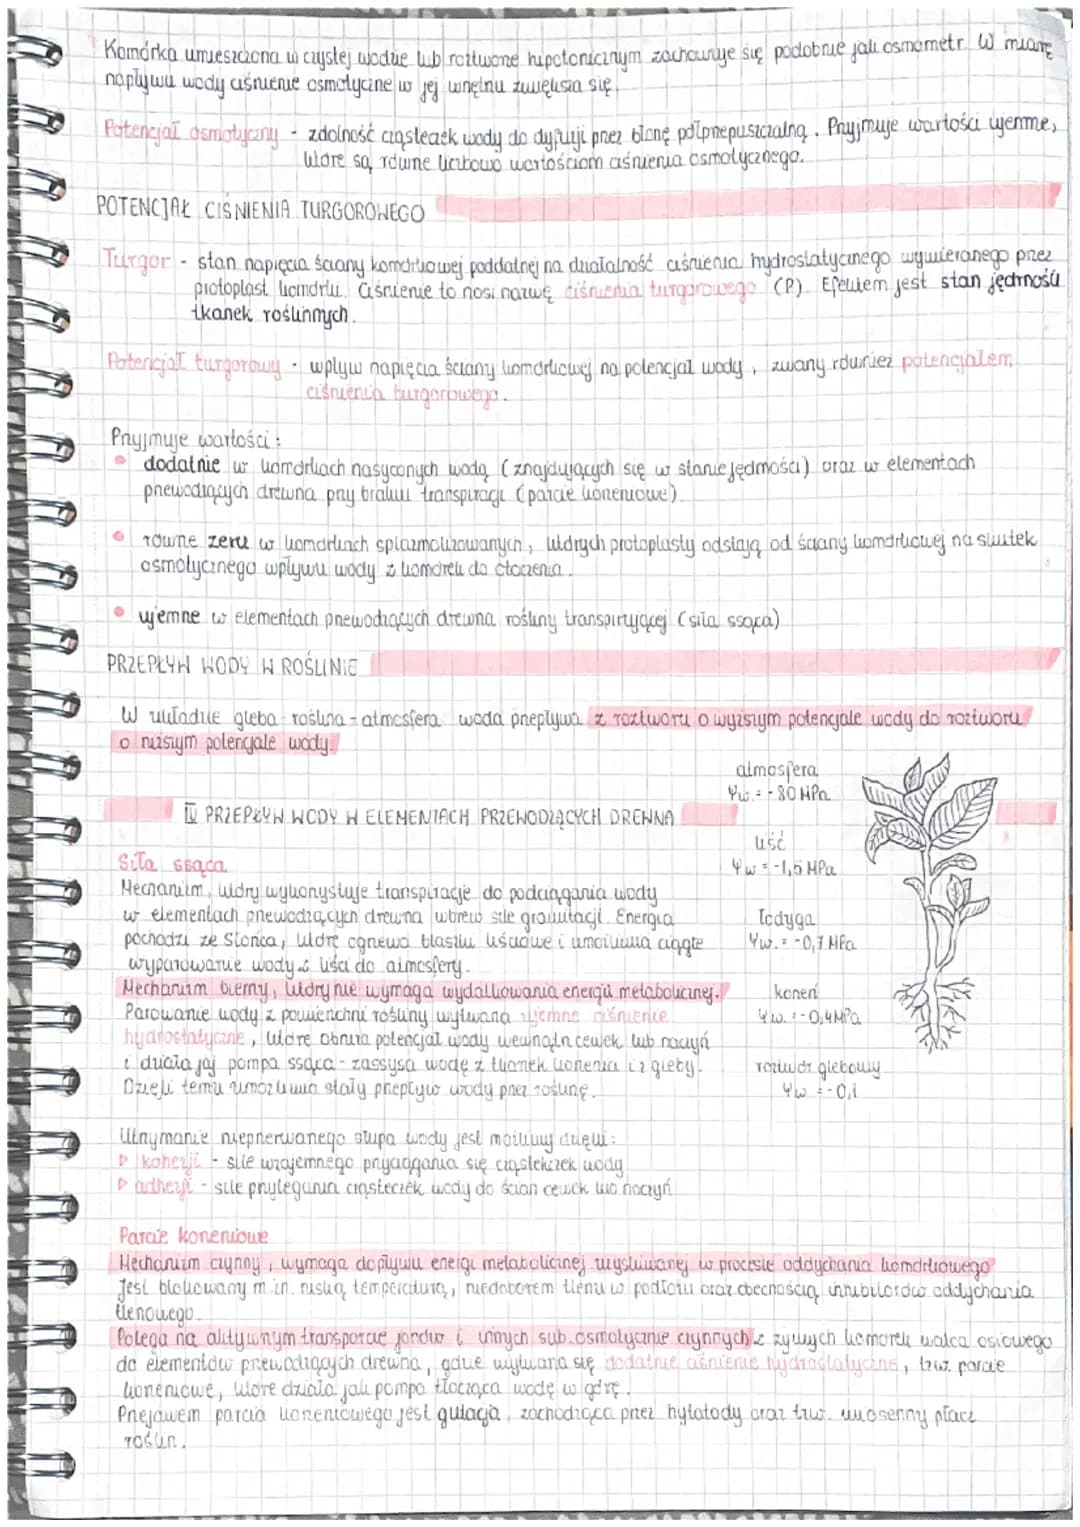 Komórka umieszczona w czystej wodzie lub roztworze hipotonicznym zachowuje się podobnie jak osmometr. W miarę
napływu wody ciśnienie osmotyczne w jej wnętrzu zwiększa się.
Potencjał osmotyczny - zdolność cząsteczek wody do dyfuzji przez błonę półprzepuszczalną. Przyjmuje wartości ujemne,
które są równe liczbowo wartościom ciśnienia osmotycznego.
POTENCJAŁ CIŚNIENIA TURGOROWEGO
Turgor - stan napięcia ściany komórkowej poddatnej na działalność ciśnienia hydrostatycznego wywieranego przez
protoplast komórki. Ciśnienie to nosi nazwę ciśnienia turgorowego (P). Efektem jest stan jędrności
tkanek roślinnych.
Potencjał turgorowy - wpływ napięcia ściany komórkowej na potencjał wody, zwany również potencjałem
ciśnienia turgorowego.
Przyjmuje wartości:
• dodatnie w komórkach nasyconych wodą (znajdujących się w stanie jędrności) oraz w elementach
przewodzących drewna przy braku transpiracji (parcie korzeniowe)
• równe zeru w komórkach splazmolizowanych, których protoplasty odstają od ściany komórkowej na skutek
osmotycznego wpływu wody z komórek do otoczenia.
• ujemne w elementach przewodzących drewna rośliny transpirującej (siła ssąca)
PRZEPŁYW WODY W ROŚLINIE
W układzie gleba - roślina - atmosfera woda przepływa z roztworu o wyższym potencjale wody do roztworu
o niższym potencjale wody.
atmosfera
Ψw. = -80 MPa
IV PRZEPŁYW WODY W ELEMENTACH PRZEWODZĄCYCH DREWNA
liść
Ψw = -1,5 MPa
Siła ssąca
Mechanizm, który wykorzystuje transpirację do podciągania wody
w elementach przewodzących drewna wbrew sile grawitacji. Energia
łodyga
pochodzi ze Słońca, które ogrzewa blaszki liściowe i umożliwia ciągłe
Ψw. = -0,7 MPa
wyparowanie wody z liści do atmosfery.
Mechanizm bierny, który nie wymaga wydatkowania energii metabolicznej.
korzeń
Parowanie wody z powierzchni rośliny wytwarza ujemne ciśnienie
Ψw. = -0,4MPa
hydrostatyczne, które obniża potencjał wody wewnątrz cewek lub naczyń
i działa jaj pompa ssąca - zassysa wodę z tkanek korzenia i z gleby.
roztwór glebowy
Dzięki temu umożliwia stały przepływ wody przez roślinę.
Ψw = -0,1
Utrzymanie nieprzerwanego słupa wody jest możliwy dzięki:
▷ kohezji - sile wzajemnego przyciągania się cząsteczek wody
▷ adhezji - sile przylegania cząsteczek wody do ścian cewek lub naczyń
Parcie korzeniowe
Mechanizm czynny, wymaga dopływu energii metabolicznej uzyskiwanej w procesie oddychania komórkowego
Jest blokowany m.in. niską temperaturą, niedoborem tlenu w podłożu oraz obecnością inhibitorów oddychania
tlenowego.
Polega na aktywnym transporcie jonów i innych sub. osmotycznie czynnych z żywych komórek walca osiowego
do elementów przewodzących drewna, gdzie wytwarza się dodatnie ciśnienie hydrostatyczne, tzw. parcie
korzeniowe, które działa jak pompa tłocząca wodę w górę.
Przejawem parcia korzeniowego jest gutacja, zachodząca przez hydatody oraz tzw. wiosenny płacz
roślin.